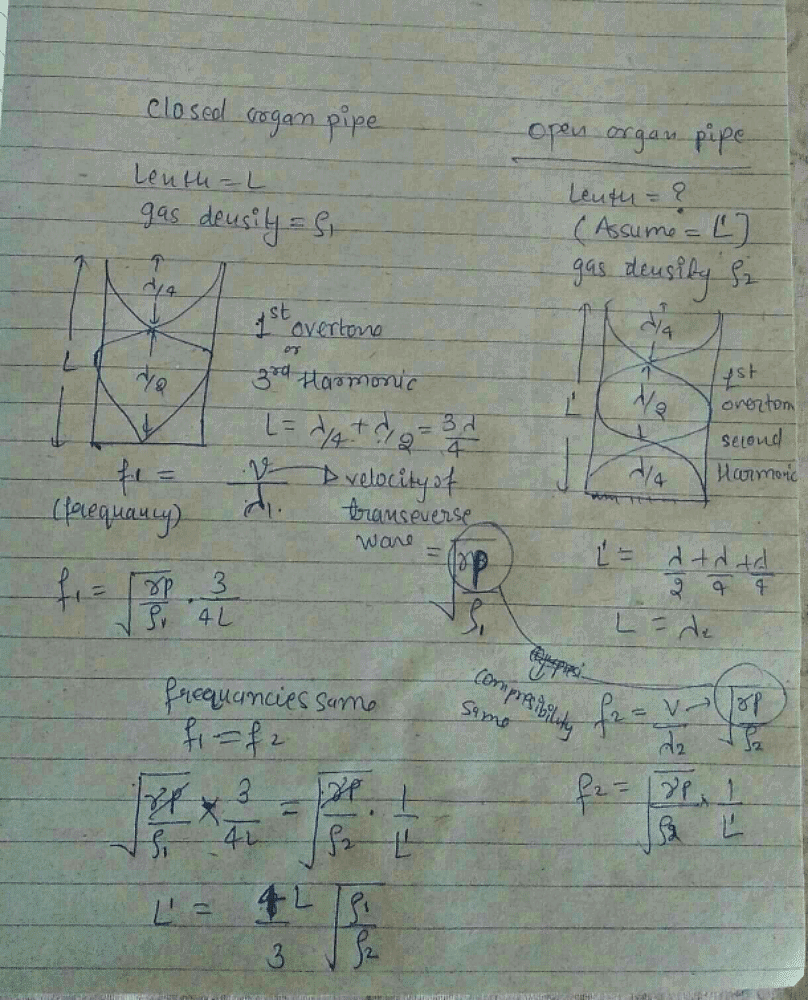 closed organ pipe
Lenth = L
gas density = ρ₁
λ/4
L
λ/2
1st overtone
or
3rd Harmonic
L = λ/4 + λ/2 = 3λ/4
f₁ = v/λ₁
(ferequancy)
velocity of
transeverse
wave = √(γp/ρ₁)
f₁ = √(γp/ρ₁) · 3/4L
open organ pipe
Lenth = ?
(Assume = L']
gas density ρ₂
λ/4
L'
λ/2
λ/4
1st
overtom
second
Harmonic
L' = λ/2 + λ/4 + λ/4
L = λ₂
compresibility
same
f₂ = v/λ₂ → √(γp/ρ₂)
f₂ = √(γp/ρ₂) × 1/L'
frequancies same
f₁ = f₂
√(γp/ρ₁) × 3/4L = √(γp/ρ₂) · 1/L'
L' = 4L/3 √(ρ₁/ρ₂)